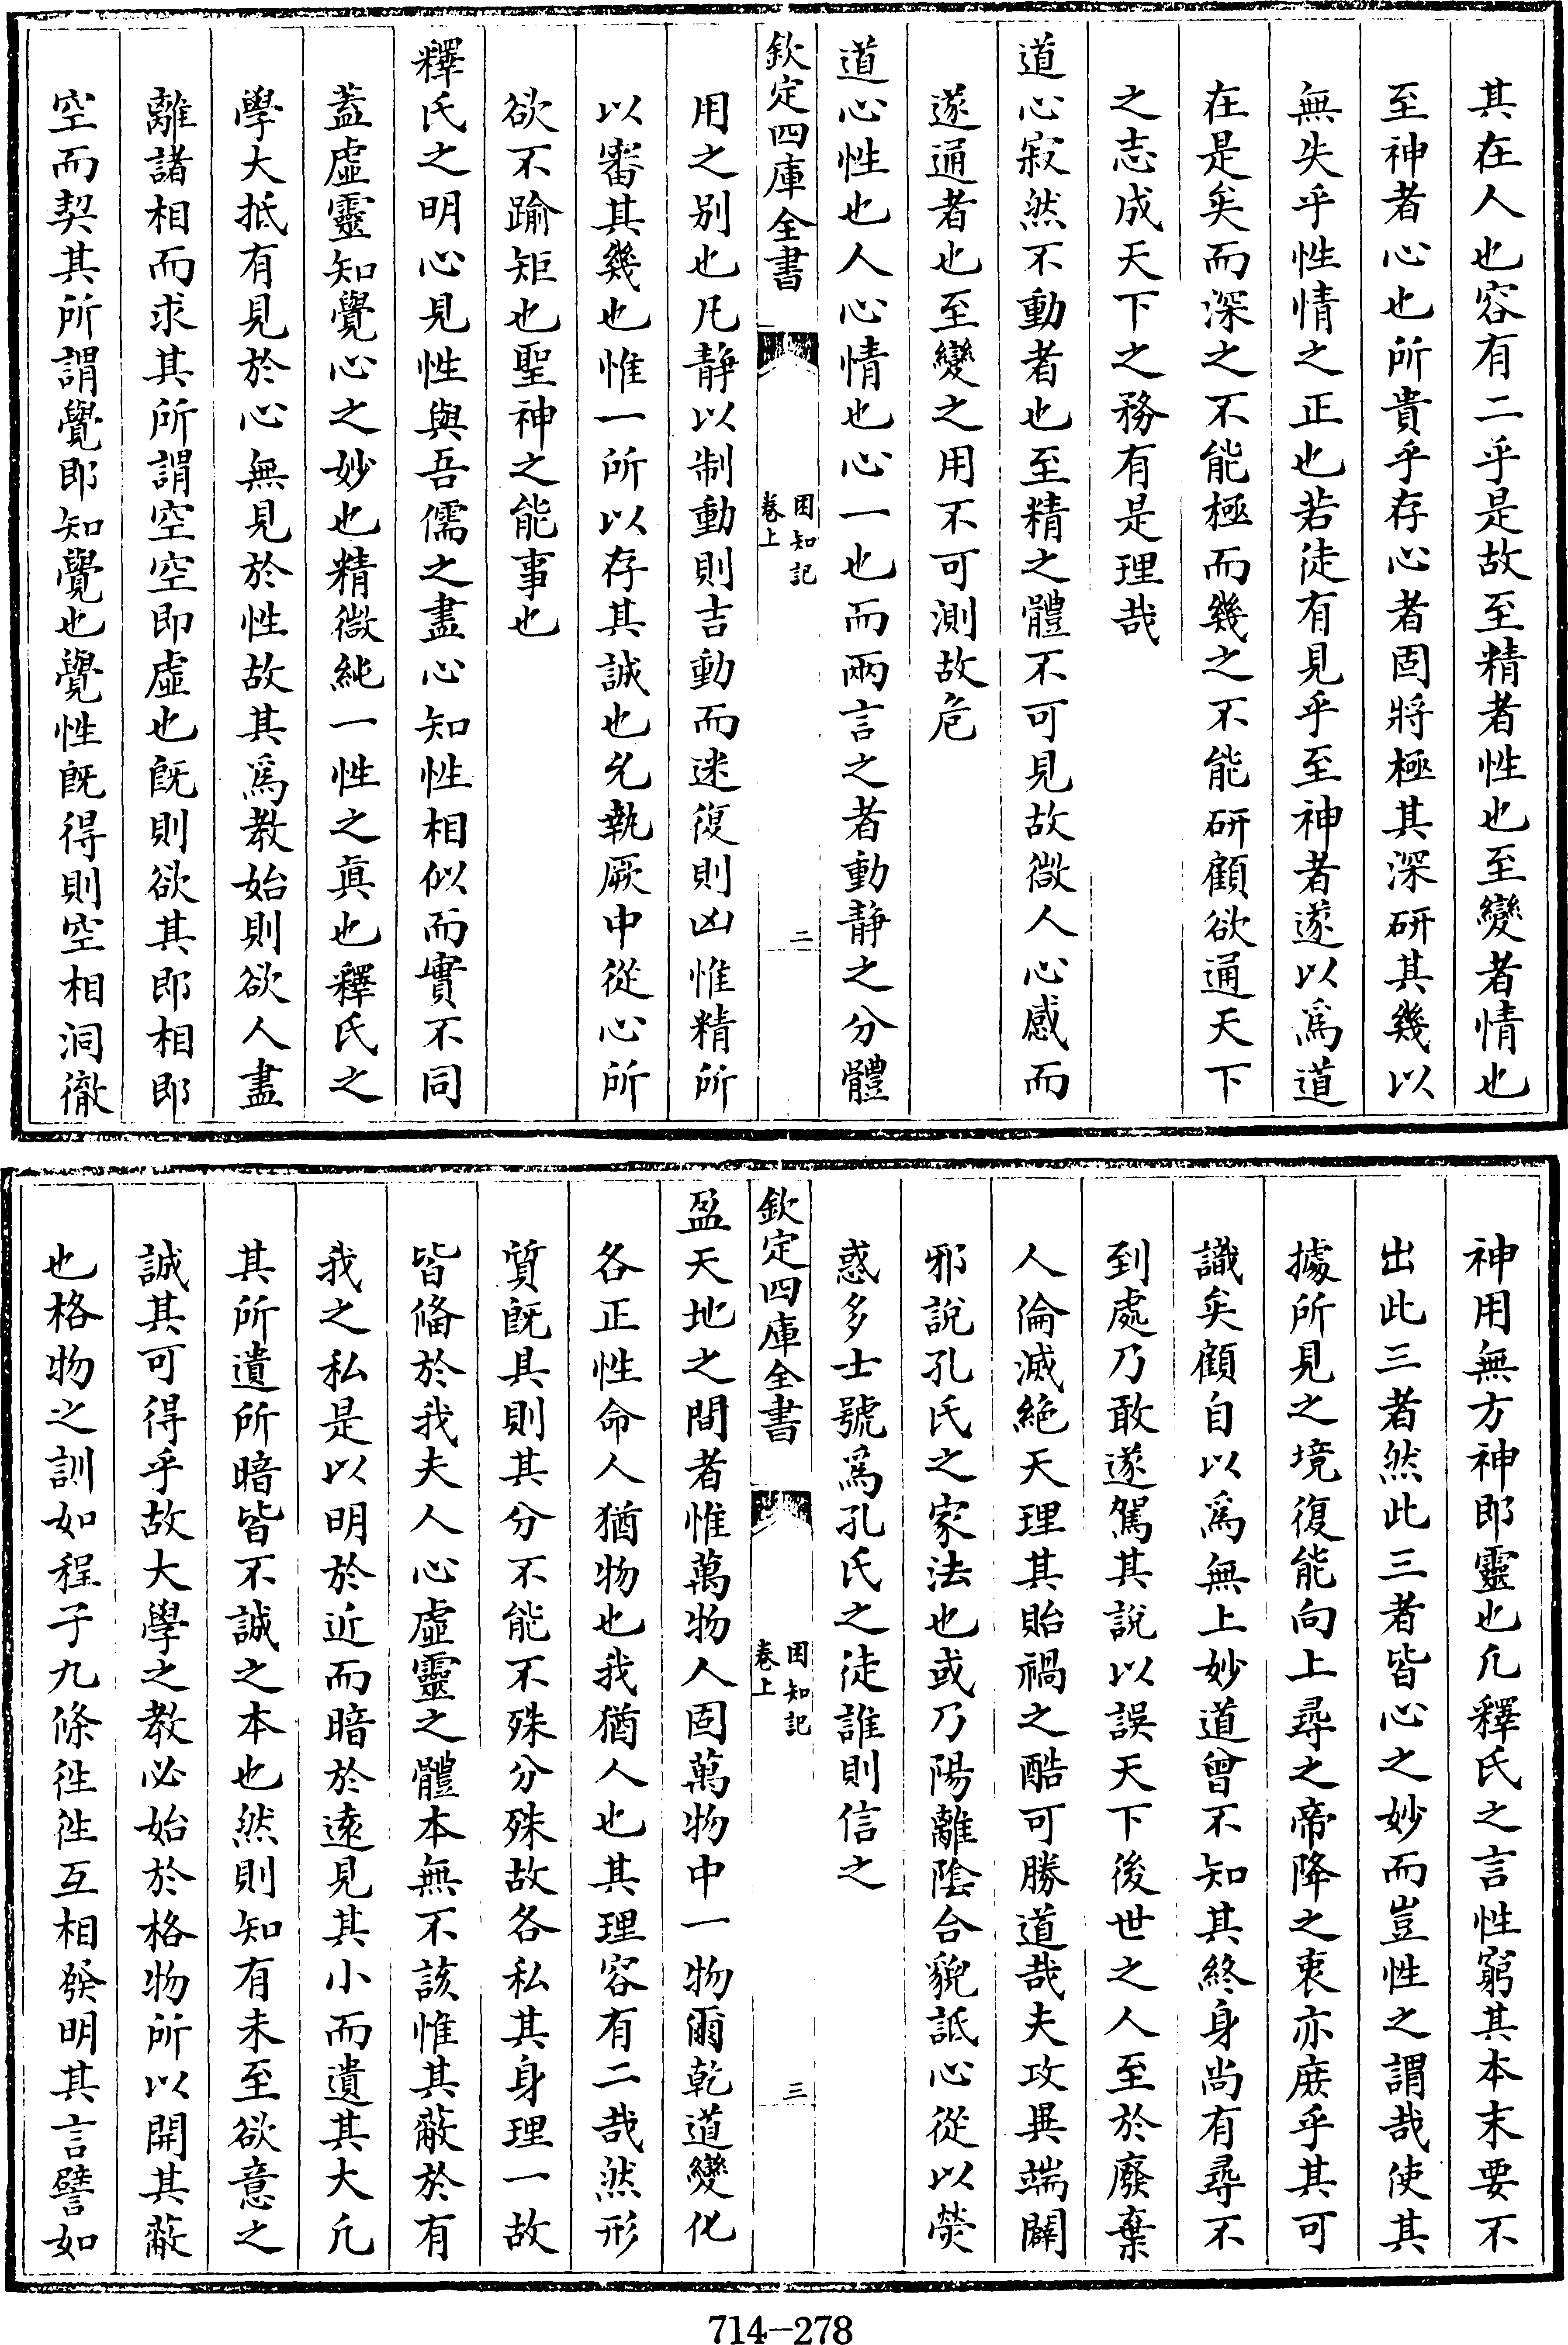 其在人也容有二乎是故至精者性也至變者情也
至神者心也所貴乎存心者固將極其深研其幾以
無失乎性情之正也若徒有見乎至神者遂以爲道
在是矣而深之不能極而幾之不能研顧欲通天下
之志成天下之務有是理哉
道心寂然不動者也至精之體不可見故微人心感而
遂通者也至變之用不可測故危
道心性也人心情也心一也而兩言之者動靜之分體
欽定四庫全書
困知記
卷上
二
用之別也凡靜以制動則吉動而迷復則凶惟精所
以審其幾也惟一所以存其誠也允執厥中從心所
欲不踰矩也聖神之能事也
釋氏之明心見性與吾儒之盡心知性相似而實不同
蓋虛靈知覺心之妙也精微純一性之真也釋氏之
學大抵有見於心無見於性故其爲教始則欲人盡
離諸相而求其所謂空空即虛也旣則欲其即相即
空而契其所謂覺即知覺也覺性旣得則空相洞徹
神用無方神即靈也凡釋氏之言性窮其本末要不
出此三者然此三者皆心之妙而豈性之謂哉使其
據所見之境復能向上尋之帝降之衷亦庶乎其可
識矣顧自以爲無上妙道曾不知其終身尚有尋不
到處乃敢遂駕其說以誤天下後世之人至於廢棄
人倫滅絕天理其貽禍之酷可勝道哉夫攻異端闢
邪說孔氏之家法也或乃陽離陰合貌詆心從以熒
惑多士號爲孔氏之徒誰則信之
欽定四庫全書
困知記
卷上
三
盈天地之間者惟萬物人固萬物中一物爾乾道變化
各正性命人猶物也我猶人也其理容有二哉然形
質旣具則其分不能不殊分殊故各私其身理一故
皆備於我夫人心虛靈之體本無不該惟其蔽於有
我之私是以明於近而暗於遠見其小而遺其大凡
其所遺所暗皆不誠之本也然則知有未至欲意之
誠其可得乎故大學之教必始於格物所以開其蔽
也格物之訓如程子九條徃徃互相發明其言譬如
714-278